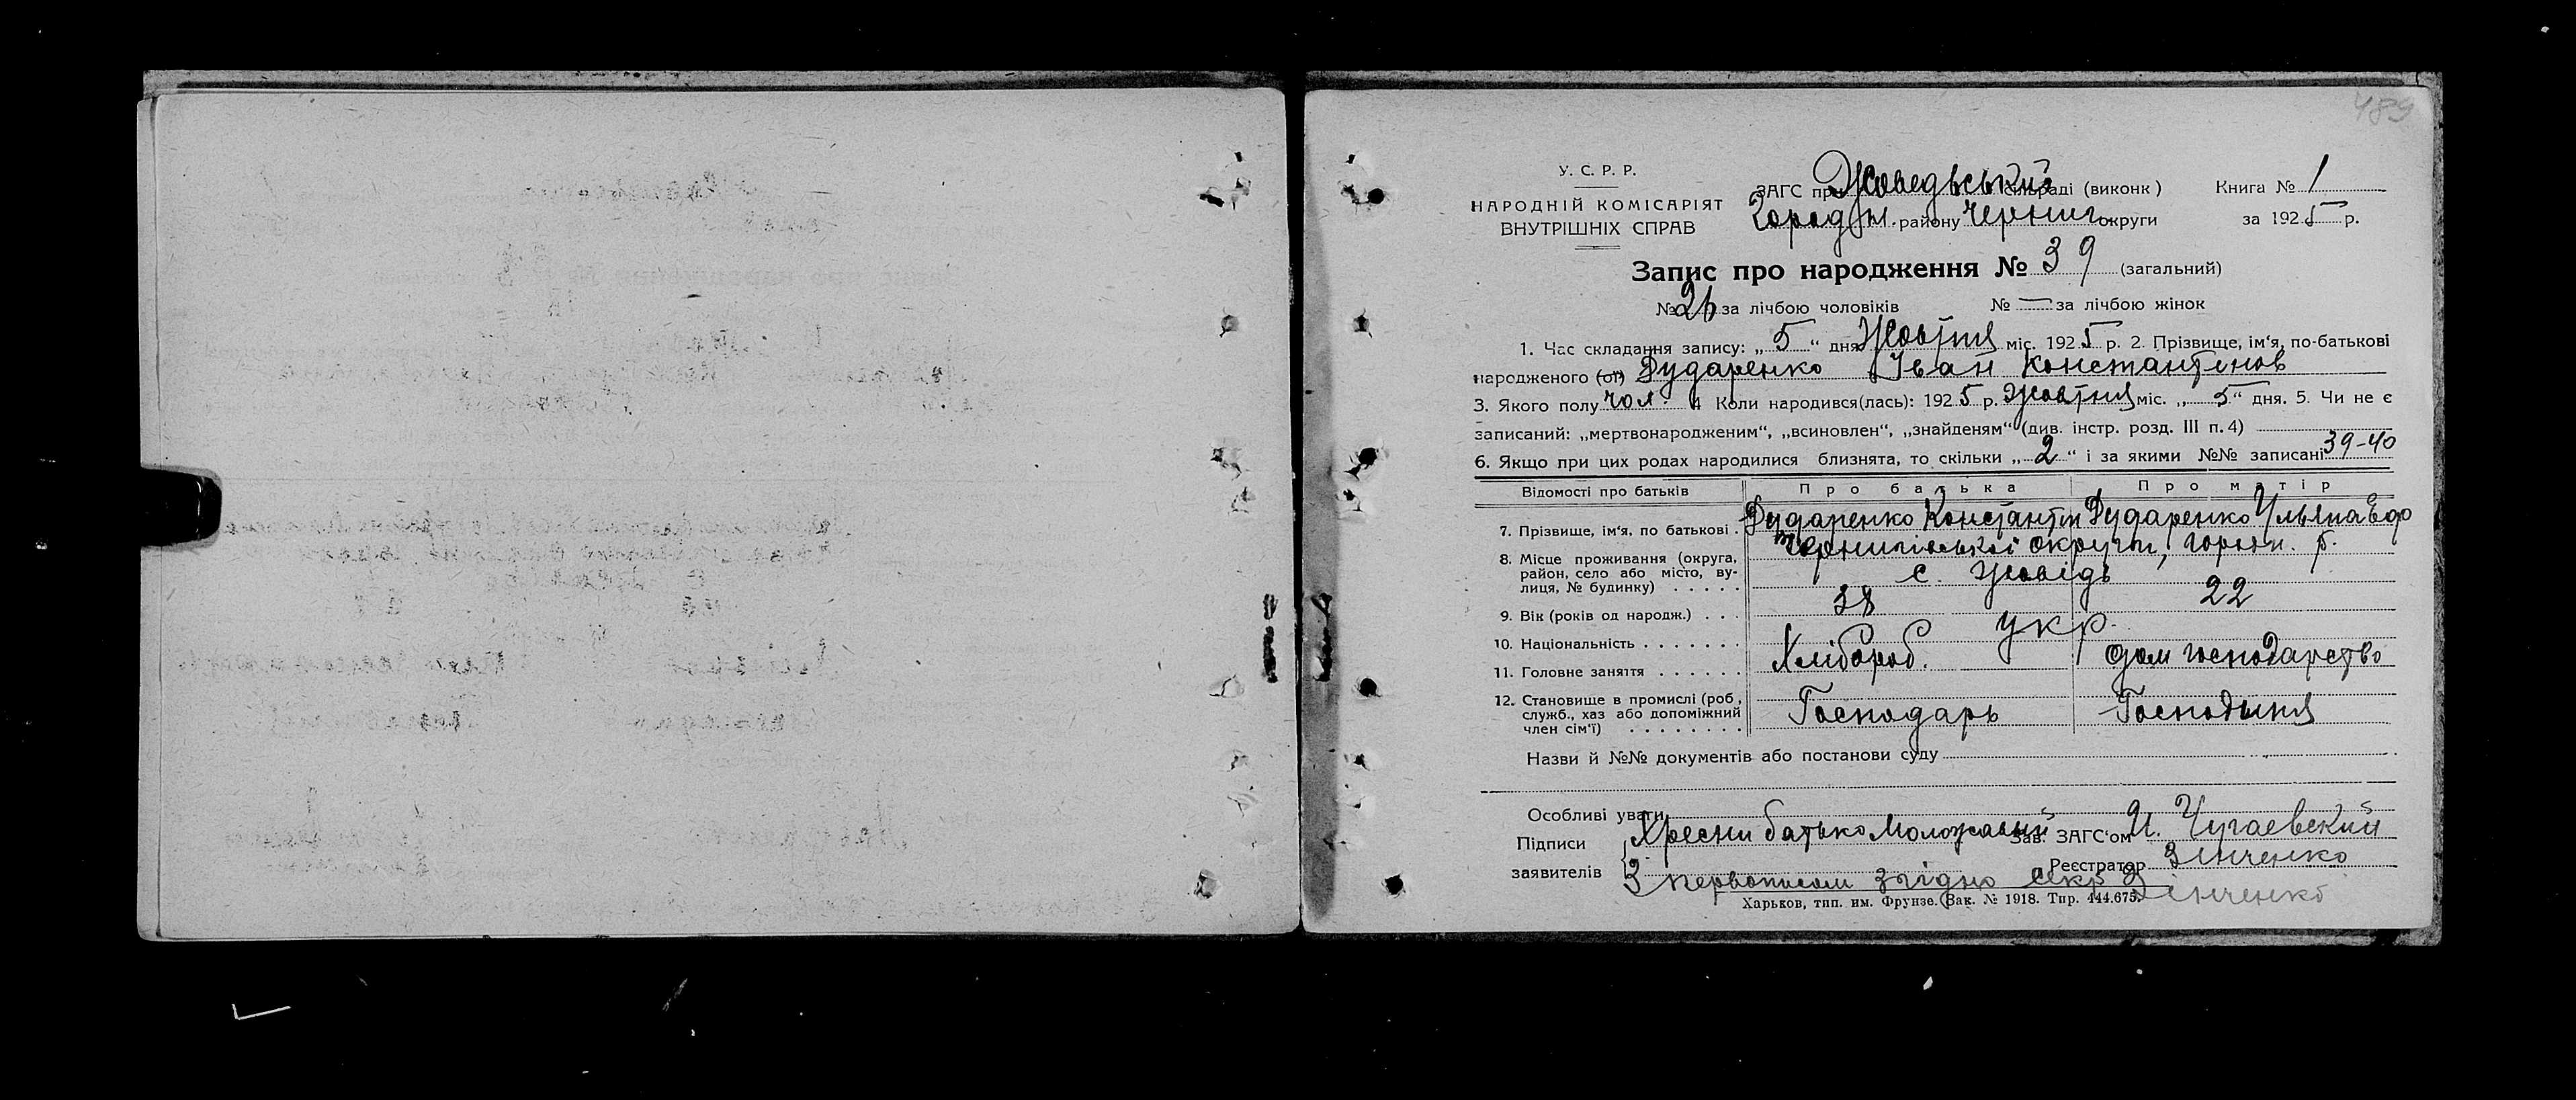 489
У. С. Р. Р.
НАРОДНІЙ КОМІСАРІЯТ
ВНУТРІШНІХ СПРАВ
ЗАГС при Жоведьський сільраді (виконк)
Городн. району Черниг. округи
Книга № 1
за 1925 р.
Запис про народження № 39 (загальний)
№ 26 за лічбою чоловіків № — за лічбою жінок
1. Час складання запису: „5“ дня Жовтня міс. 1925 р. 2. Прізвище, ім‘я, по-батькові
народженого (ої) Дударенко Іван Константінов
3. Якого полу чол. 4 Коли народився(лась): 1925 р. Жовтня міс. „5“ дня. 5. Чи не є
записаний: „мертвонародженим“, „всиновлен“, „знайденям“ (див. інстр. розд. III п. 4)
6. Якщо при цих родах народилися близнята, то скільки „2“ і за якими №№ записані 39-40
Відомості про батьків Про батька Про матір
7. Прізвище, ім‘я, по батькові . Дударенко Константін Дударенко Ульяна Ефо
8. Місце проживання (округа,
район, село або місто, ву-
лиця, № будинку) . . . . .
Чернигівської округи, городн. р.
с. Жовідь
9. Вік (років од народж.) . . . 38 22
10. Національність . . . . . . . укр.
11. Головне заняття . . . . . . Хлібороб. дом господарство
12. Становище в промислі (роб.,
служб., хаз або допоміжний
член сім‘ї) . . . . . . . .
Господарь Господиня
Назви й №№ документів або постанови суду
Особливі уваги
Підписи
заявителів
Хресни батько Моложавий
Зав. ЗАГС‘ом И. Чугаевский
Реєстратор Зінченко
З первописом згідно секр Зінченко
Харьков, тип. им. Фрунзе. Зак. № 1918. Тир. 444.675.